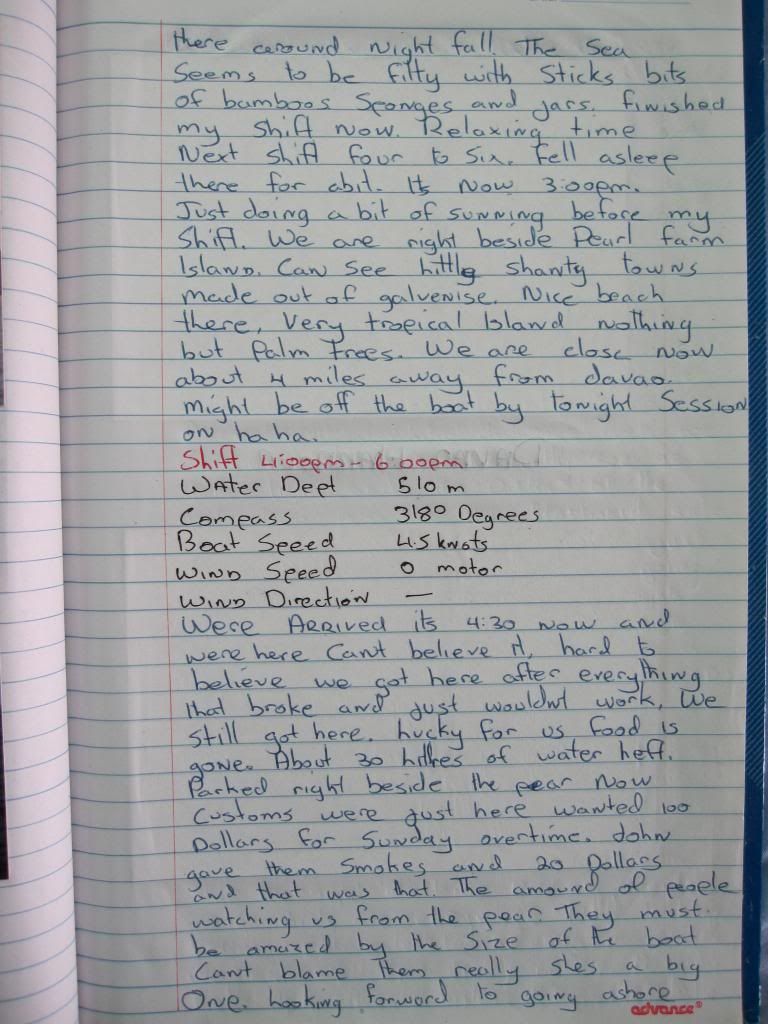 there around night fall. The Sea
Seems to be filty with Sticks bits
of bamboos Sponges and jars. finished
my Shift now. Relaxing time
Next Shift four to Six. Fell asleep
there for abit. Its now 3:00pm.
Just doing a bit of sunning before my
Shift. We are right beside Pearl farm
Island. Can See little shanty towns
made out of galvenise. Nice beach
there, Very tropical Island nothing
but Palm trees. We are close now
about 4 miles away from davao.
might be off the boat by tonight Session
on ha ha.
Shift 4:00pm - 6:00pm
Water Dept 510 m
Compass 318° Degrees
Boat Speed 4.5 knots
Wind Speed 0 motor
Wind Direction —
Were Arrived its 4:30 now and
were here Cant believe it, hard to
believe we got here after everything
that broke and just wouldnt work, We
Still got here. Lucky for us food is
gone. About 30 litres of water left.
Parked right beside the pear now
Customs were just here wanted 100
Dollars for Sunday overtime. John
gave them Smokes and 20 Dollars
and that was that. The amound of people
watching us from the pear. They must
be amazed by the Size of the boat
Cant blame them really shes a big
One. Looking forward to going ashore
advance®